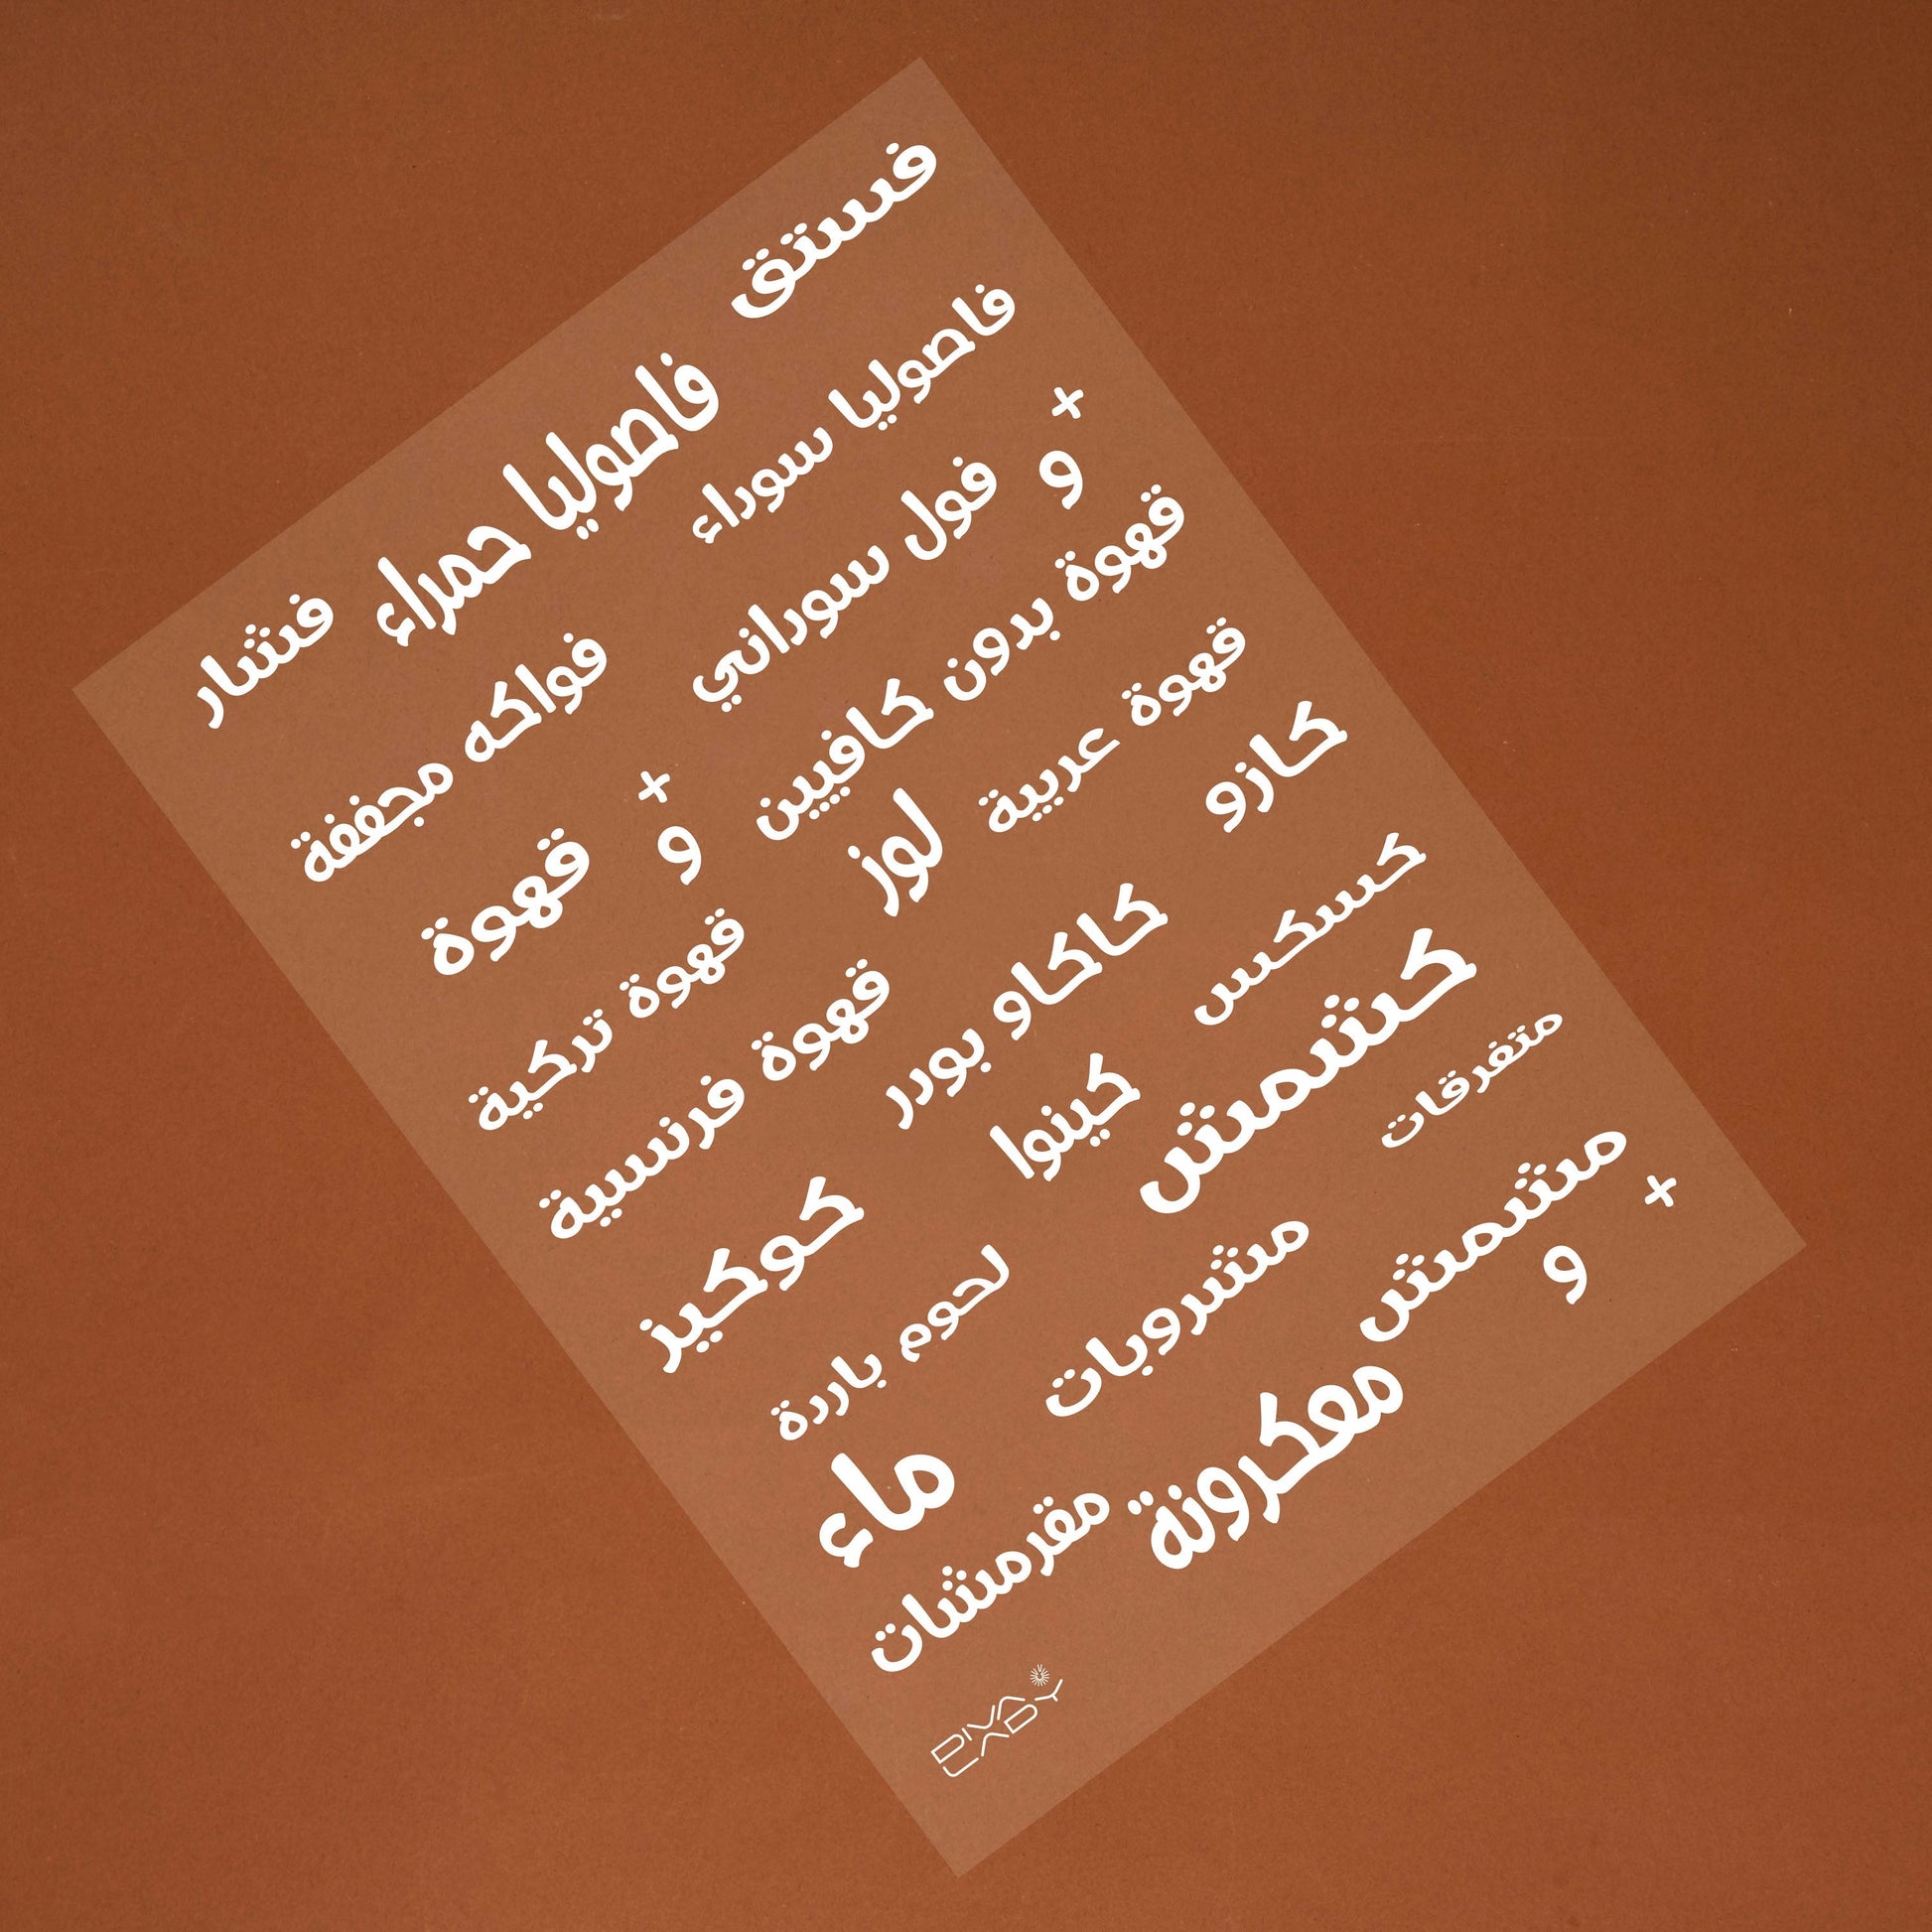 فستق
فاصوليا حمراء
فشار
فاصوليا سوراء
فول سوراني
فواكه مجففة
+
و
قهوة بدون كافيين
+
و
قهوة
قهوة عربية
لوز
قهوة تركية
كازو
كاكاو بودر
قهوة فرنسية
كسكس
كشمش
كينوا
كوكيز
متفرقات
مشروبات
لحوم باردة
مشمش
+
و
معكرونة
ماء
مقرمشات
DIVA
LADY